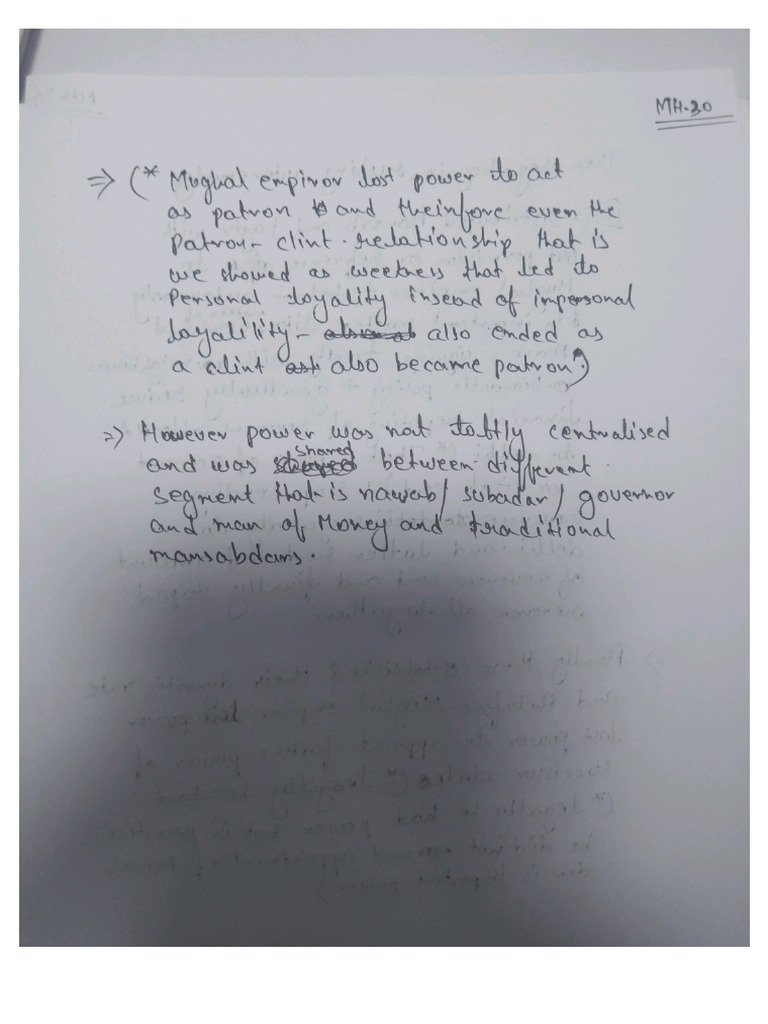 MH-30
⇒ (* Mughal empiror lost power to act
as patron and theirfore even the
Patron - clint - relationship that is
we showed as weekness that led to
Personal loyality insead of impersonal
loyalility - also ended as
a clint also became patron*)
⇒ However power was not totlly centralised
and was shared between different
segment that is nawab/ subadar/ governor
and man of Money and traditional
mansabdars.